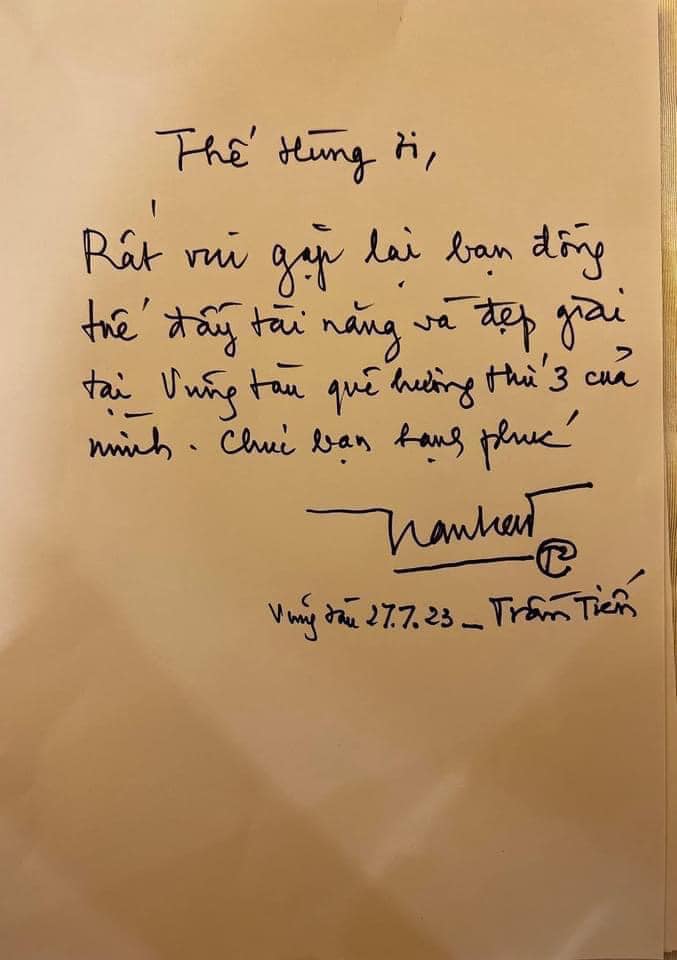 Thế Hùng ơi,
Rất vui gặp lại bạn đồng
tuế đầy tài năng và đẹp giai
tại Vũng tàu quê hương thứ 3 của
mình. Chúc bạn hạnh phúc
Trần Tiến
Vũng tàu 27.7.23 - Trần Tiến